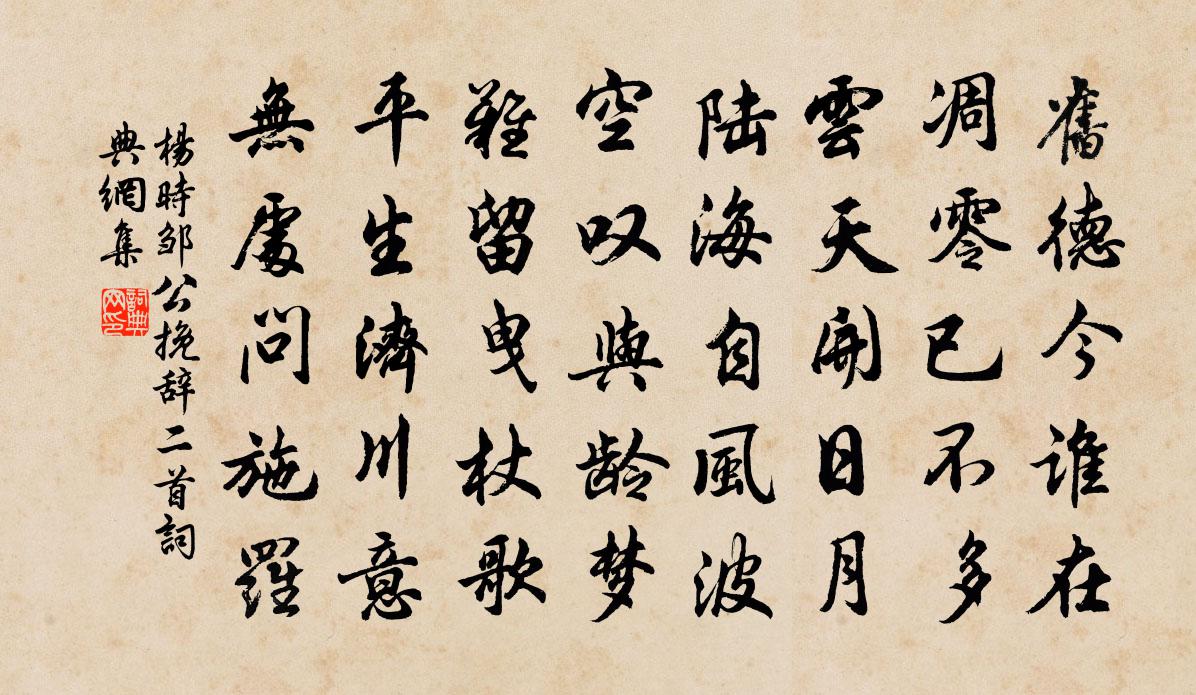 舊德今誰在
凋零已不多
雲天開日月
陆海自風波
空叹與龄梦
難留曳杖歌
平生濟川意
無處問施羅
楊時邹公挽辞二首詞
典網集
詞典
网印